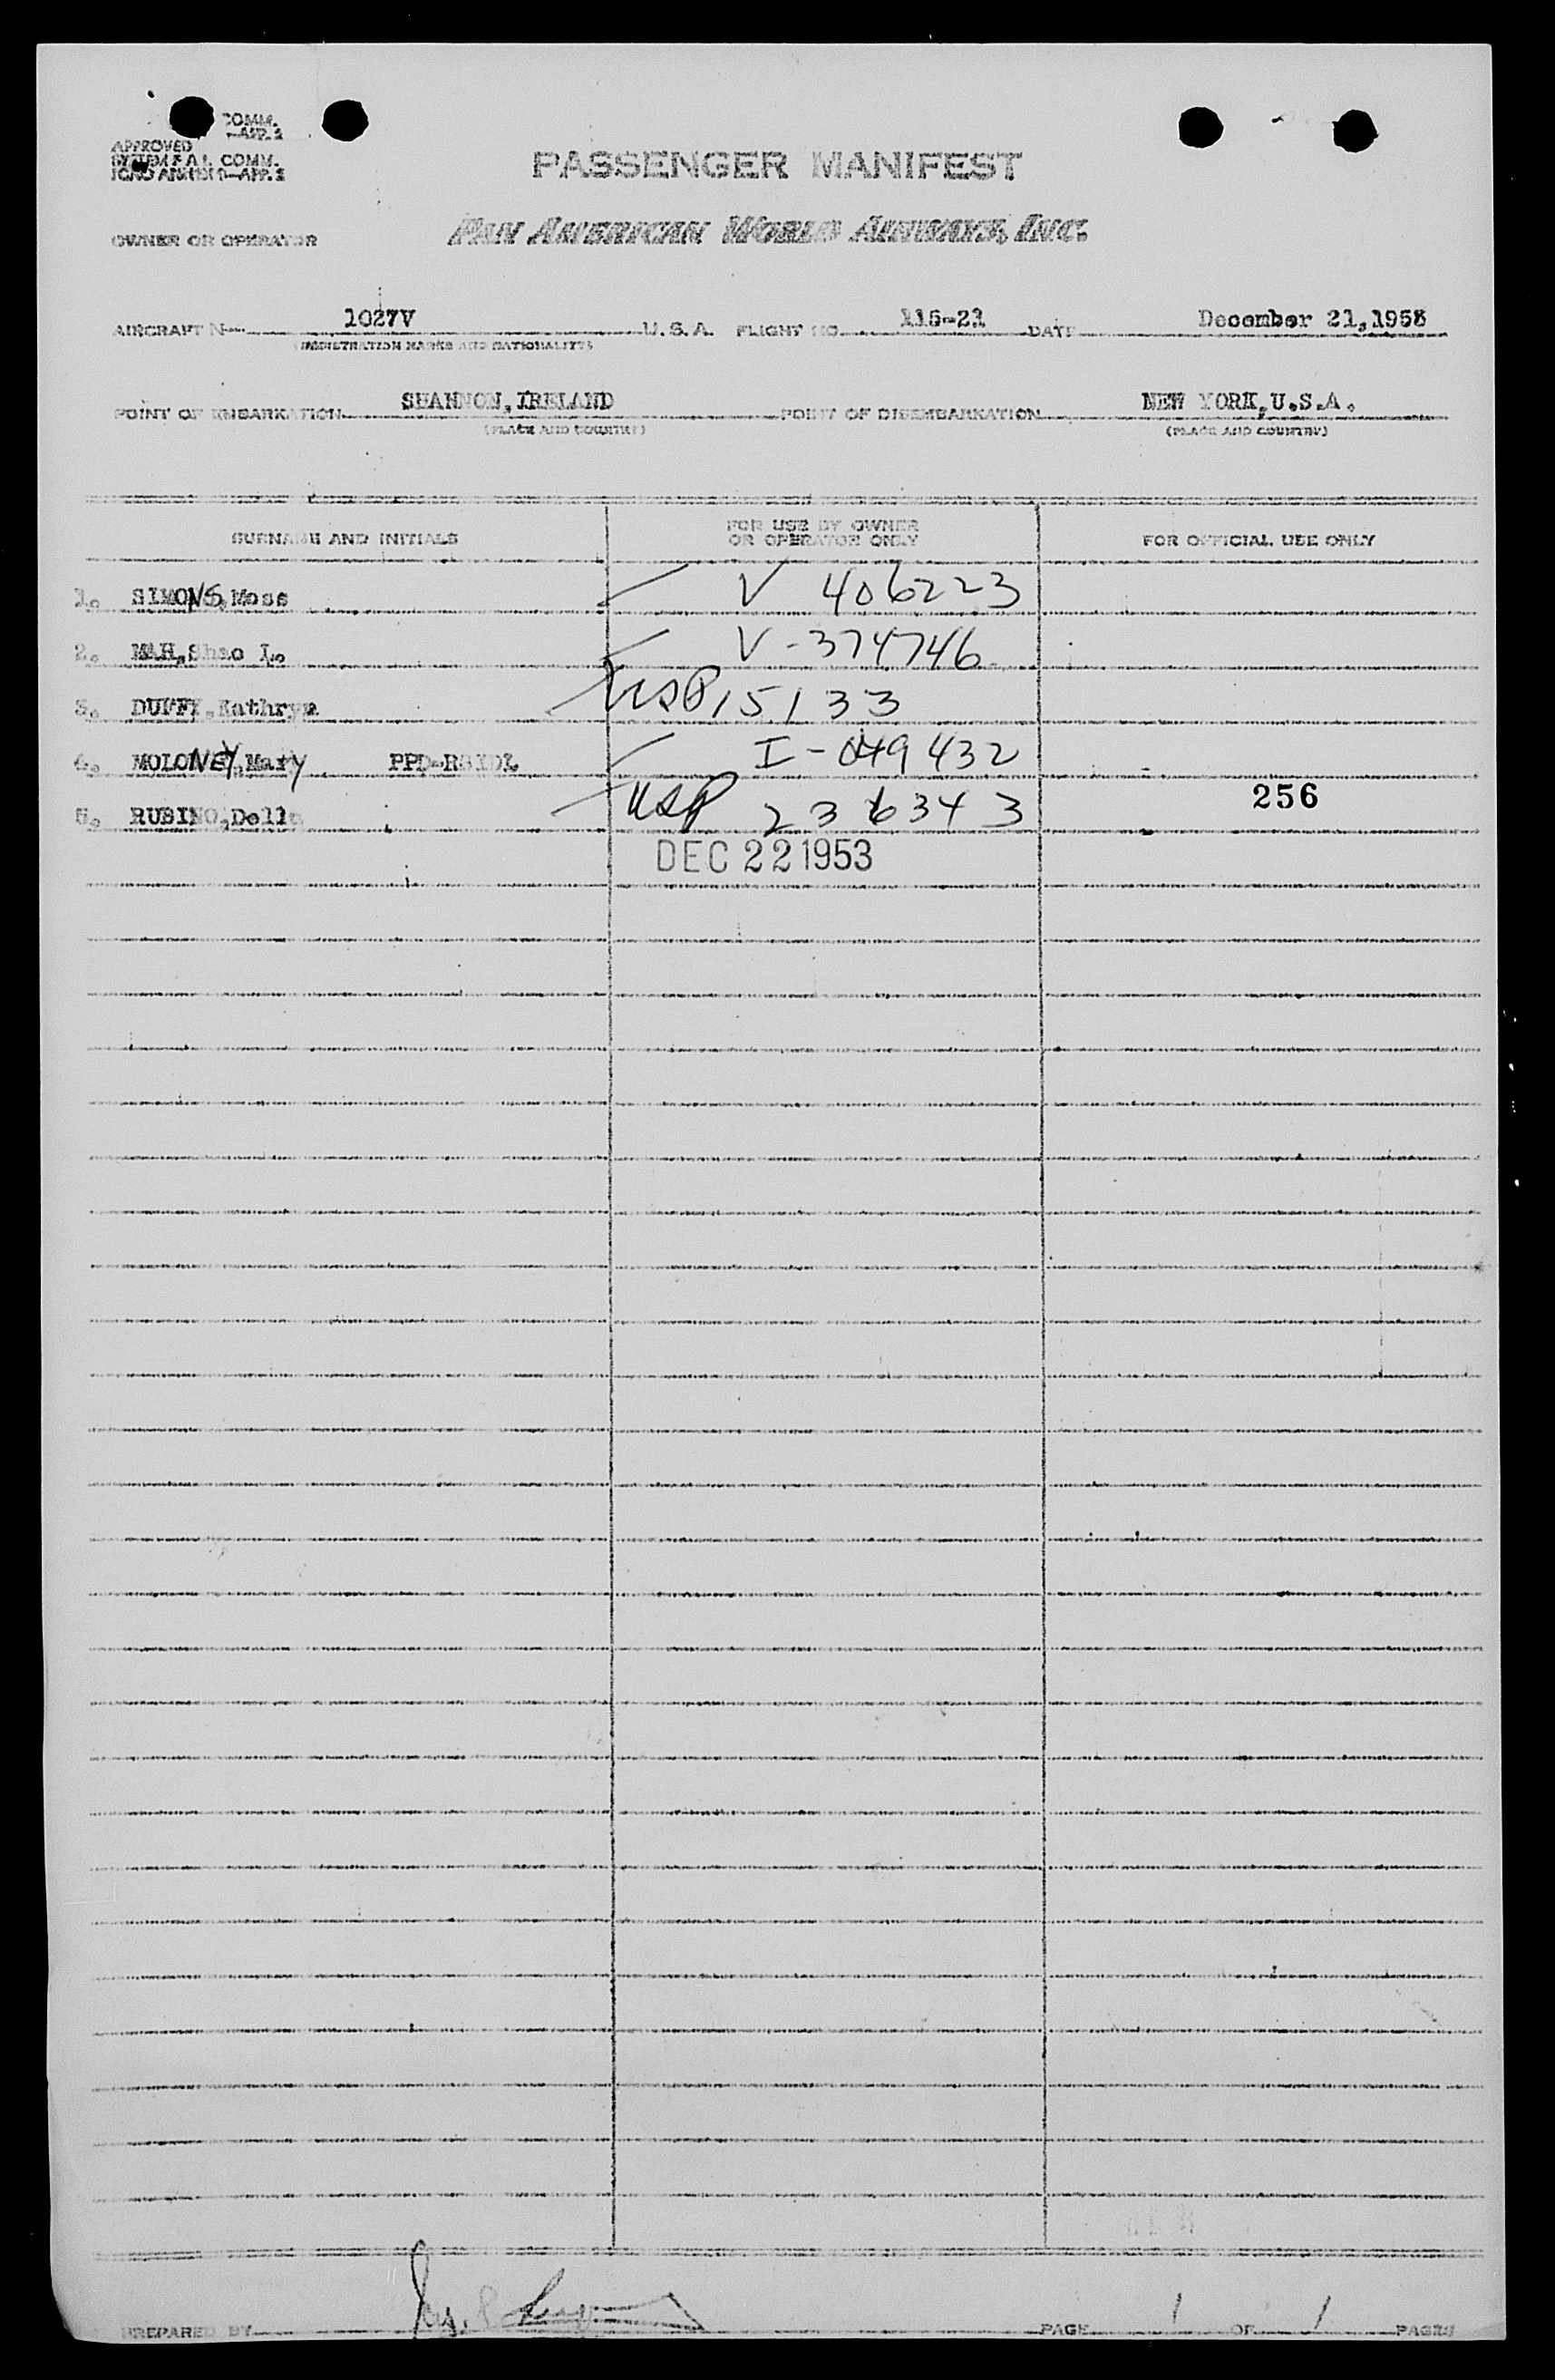 COMM.
—APP. 2
APPROVED
SYSTEM F.A.L. COMM.
ICAO ANNEX 9—APP. 2
PASSENGER MANIFEST
OWNER OR OPERATOR PAN AMERICAN WORLD AIRWAYS, INC.
AIRCRAFT N— 1027V U. S. A. FLIGHT NO. 116-21 DATE December 21,1953
(REGISTRATION MARKS AND NATIONALITY)
POINT OF EMBARKATION SHANNON,IRELAND POINT OF DISEMBARKATION NEW YORK,U.S.A.
(PLACE AND COUNTRY) (PLACE AND COUNTRY)
SURNAME AND INITIALS FOR USE BY OWNER OR OPERATOR ONLY FOR OFFICIAL USE ONLY
1. SIMONS,Moss V 406223
2. MAH,Shao L. V-374746
3. DUFFY,Kathryn USP 15133
4. MOLONEY,Mary PPD- I-049432
5. RUBINO,Della USP 236343 256
DEC 22 1953
PREPARED BY PAGE 1 OF 1 PAGES